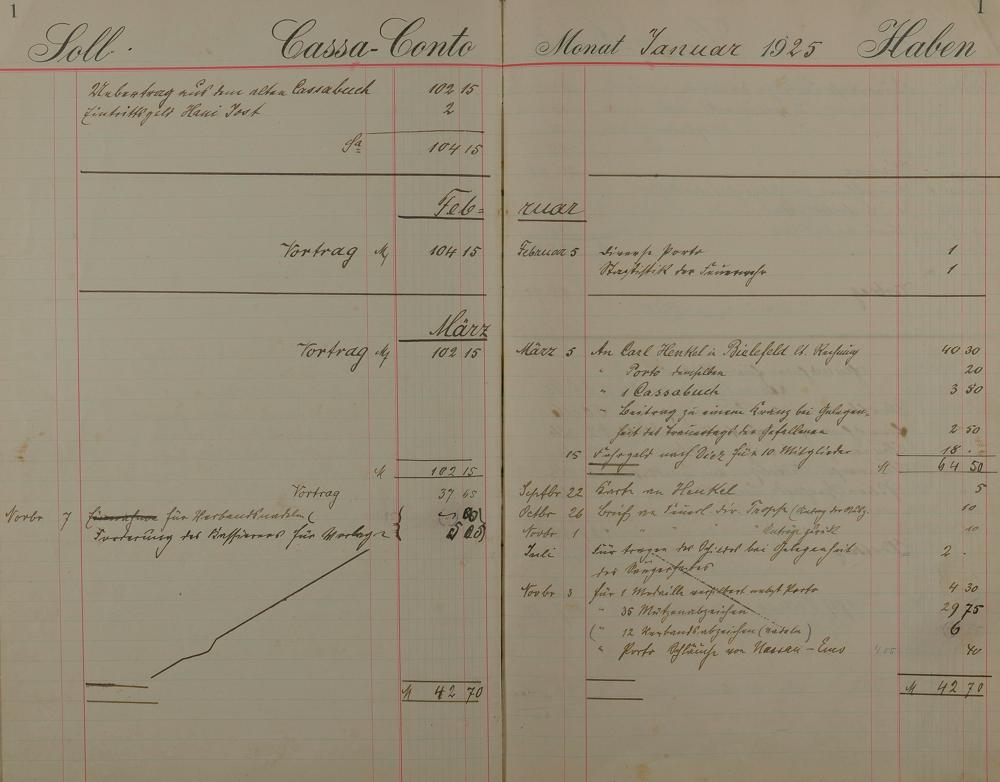 1
Soll. Cassa-Conto
Uebertrag aus dem alten Cassabuch 102 15
Eintrittsgeld Hani Jost 2
Sa 104 15
Feb=
Vortrag M 104 15
März
Vortrag M 102 15
M 102 15
Vortrag 37 65
Novbr 7 für Verbandsnadeln
Forderung des Kassierers für Vorlage 5 05
M 42 70
1
Monat Januar 1925 Haben
ruar
Februar 5 Diverse Porto 1
Stagtistik der Feuerwehr 1
März 5 An Carl Henkel in Bielefeld lt. Rechnung 40 30
" Porto demselben 20
" 1 Cassabuch 3 50
" Beitrag zu einem Kranz bei Gelegen-
heit des Trauertags der Gefallenen 2 50
15 Fahrgeld nach Diez für 10 Mitglieder 18 .
M 64 50
Septbr 22 Karte an Henkel 5
Octbr 26 Brief an 10
Novbr 1 " " " 10
Juli Für tragen des Schildes bei Gelegenheit 2 .
des Sängerfestes
Novbr 3 für 1 Medaille versilbert nebst Porto 4 30
" 35 Mützenabzeichen 29 75
( " 12 Verbandsabzeichen (nadeln) 6
" Porto Schläuche von Nassau-Ems 40
M 42 70